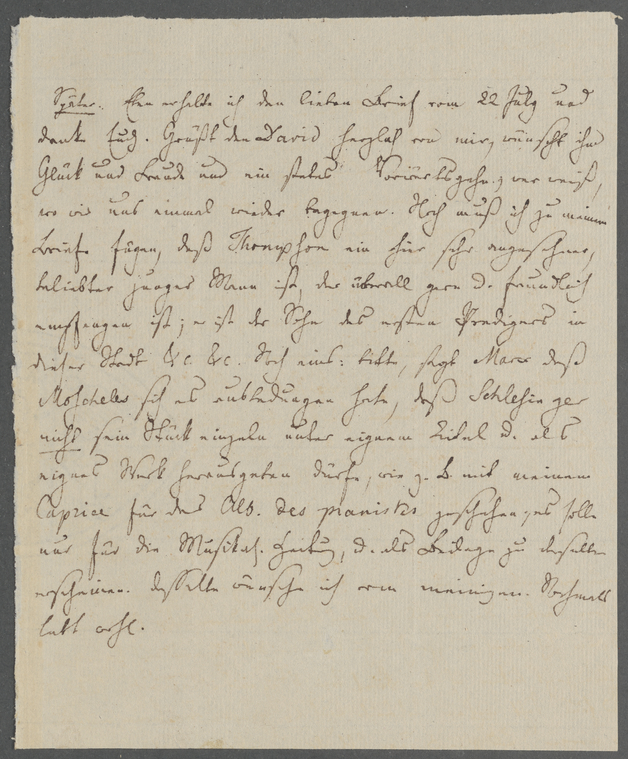 Später. Eben erhalte ich den lieben Brief vom 22 July und
danke Euch. Grüßt den David herzlich von mir, wünscht ihm
Glück und Freude und ein stetes Vorwärtsgehn; wer weiß,
wo wir uns einmal wieder begegnen. Noch muß ich zu meinem
Briefe fügen, daß Thompson ein hier sehr angesehner,
beliebter junger Mann ist, der überall gern u. freundlich
empfangen ist; er ist der Sohn des ersten Predigers in
dieser Stadt &c. &c. Noch eins: bitte, sagt Marx daß
Moscheles sich es ausbedungen hat, daß Schlesinger
nicht sein Stück einzeln unter eignem Titel u. als
eignes Werk herausgeben dürfe, wie z. B. mit meinem
Caprice für das Alb. des pianistes geschehen; es solle
nur für die Musikal. Zeitung, u. als Beilage zu derselben
erscheinen. Dasselbe wünsche ich vom meinigen. Nochmals
lebt wohl.